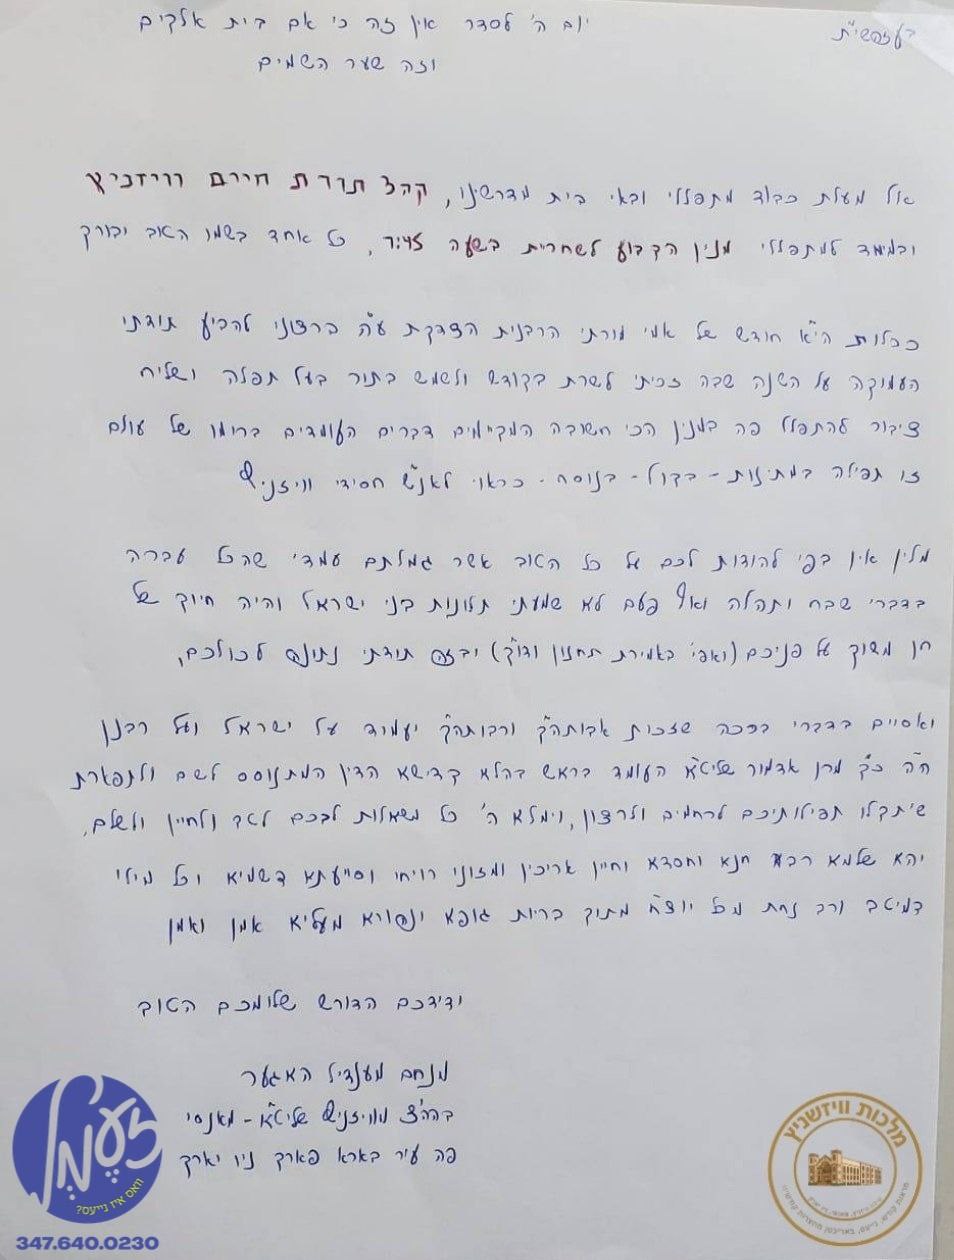 בעזהשי"ת
יום ה' לסדר אין זה כי אם בית אלקים
וזה שער השמים
אל מעלת כבוד מתפללי ובאי בית מדרשינו, קהצ תורת חיים וויזניץ
ובמיוחד למתפללי מנין הקבוע לשחרית בשעה, כל אחד בשמו הטוב יבורך
ככלות הי"א חודש של אמי מורתי הרבנית הצדקת ע"ה ברצוני להביע תודתי
העמוקה על השנה שבה זכיתי לשרת בקודש ולשמש בתור בעל תפלה ושליח
ציבור להתפלל פה במנין הכי חשובה המקיימים דברים העומדים ברומו של עולם
זו תפילה במתינות - בקול - בנוסח - כראוי לאנ"ש חסידי וויזניץ
מלין אין בפי להודות לכם על כל הטוב אשר גמלתם עמדי שהכל עברה
בדברי שבח ותהלה ואף פעם לא שמעתי תלונות בני ישראל והיה חיוך של
חן משוך על פניכם (ואפי' באמירת תחנון ודו"ק) ובזה תודתי נתונה לכולכם,
ואסיים בדברי ברכה שזכות אבותה"ק ורבותה"ק יעמוד על ישראל ועל רבנן
ה"ה כ"ק מרן אדמור שליט"א העומד בראש קהלא קדישא הדין המתנוסס לשם ולתפארת
שיתקבלו תפילותיכם לרחמים ולרצון, וימלא ה' כל משאלות לבכם לטב ולחיין ולשלם,
יהא שלמא רבא חנא וחסדא וחיין אריכין ומזוני רויחי וסייעתא דשמיא וכל מילי
דמיטב ורב נחת מכל יוצ"ח מתוך בריות גופא ונהורא מעליא אמן ואמן
ידידכם הדורש שלומכם הטוב
מנחם מענדיל האגער
בהרה"צ מוויזניץ שליט"א - מאנסי
פה עיר בארא פארק ניו יארק
זעמל
וואס איז נייעס?
347.640.0230
מלכות וויזשניץ